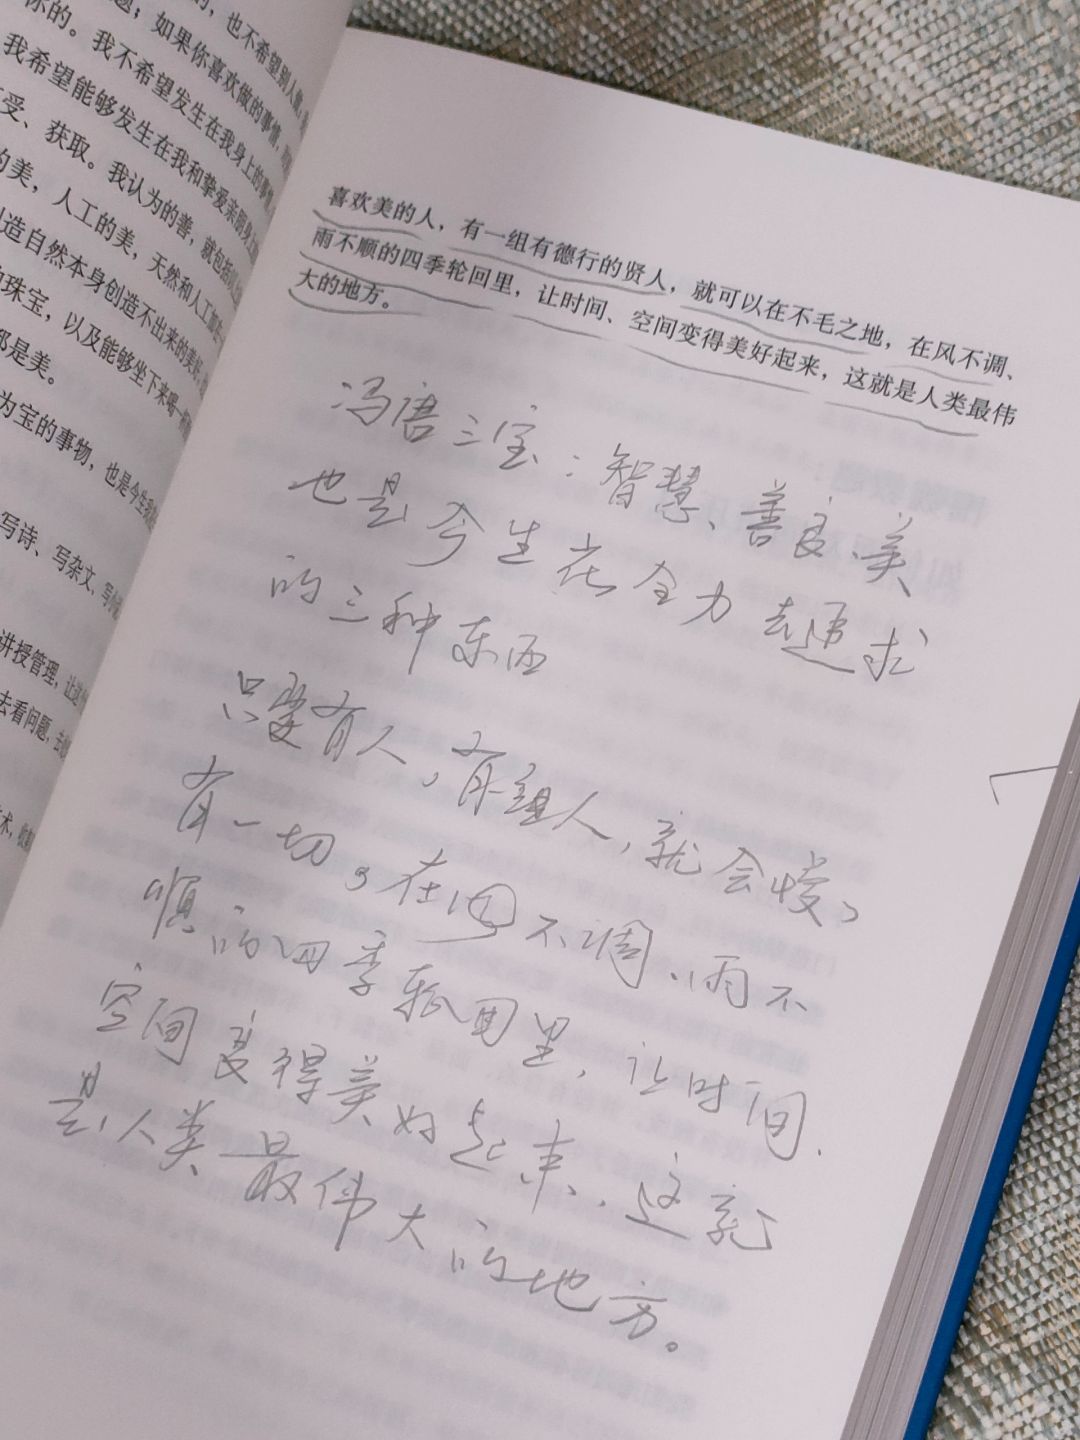 的，也不希望别人做
题；如果你喜欢做的事情，
你的。我不希望发生在我身上的事情
我希望能够发生在我和挚爱亲朋身上
受、获取。我认为的善，就包括
的美，人工的美，天然和人工
造自然本身创造不出来的美好
珠宝，以及能够坐下来喝一
都是美。
为宝的事物，也是今生我
写诗、写杂文、写小
讲授管理，让
去看问题，去
术，
喜欢美的人，有一组有德行的贤人，就可以在不毛之地，在风不调、
雨不顺的四季轮回里，让时间、空间变得美好起来，这就是人类最伟
大的地方。
冯唐三宝：智慧、善良、美
也是今生在全力去追求
的三种东西
只要有人，有组人，就会
有一切。在 不调、雨不
顺的四季轮回里，让时间、
空间变得美好起来，这就
是人类最伟大的地方。